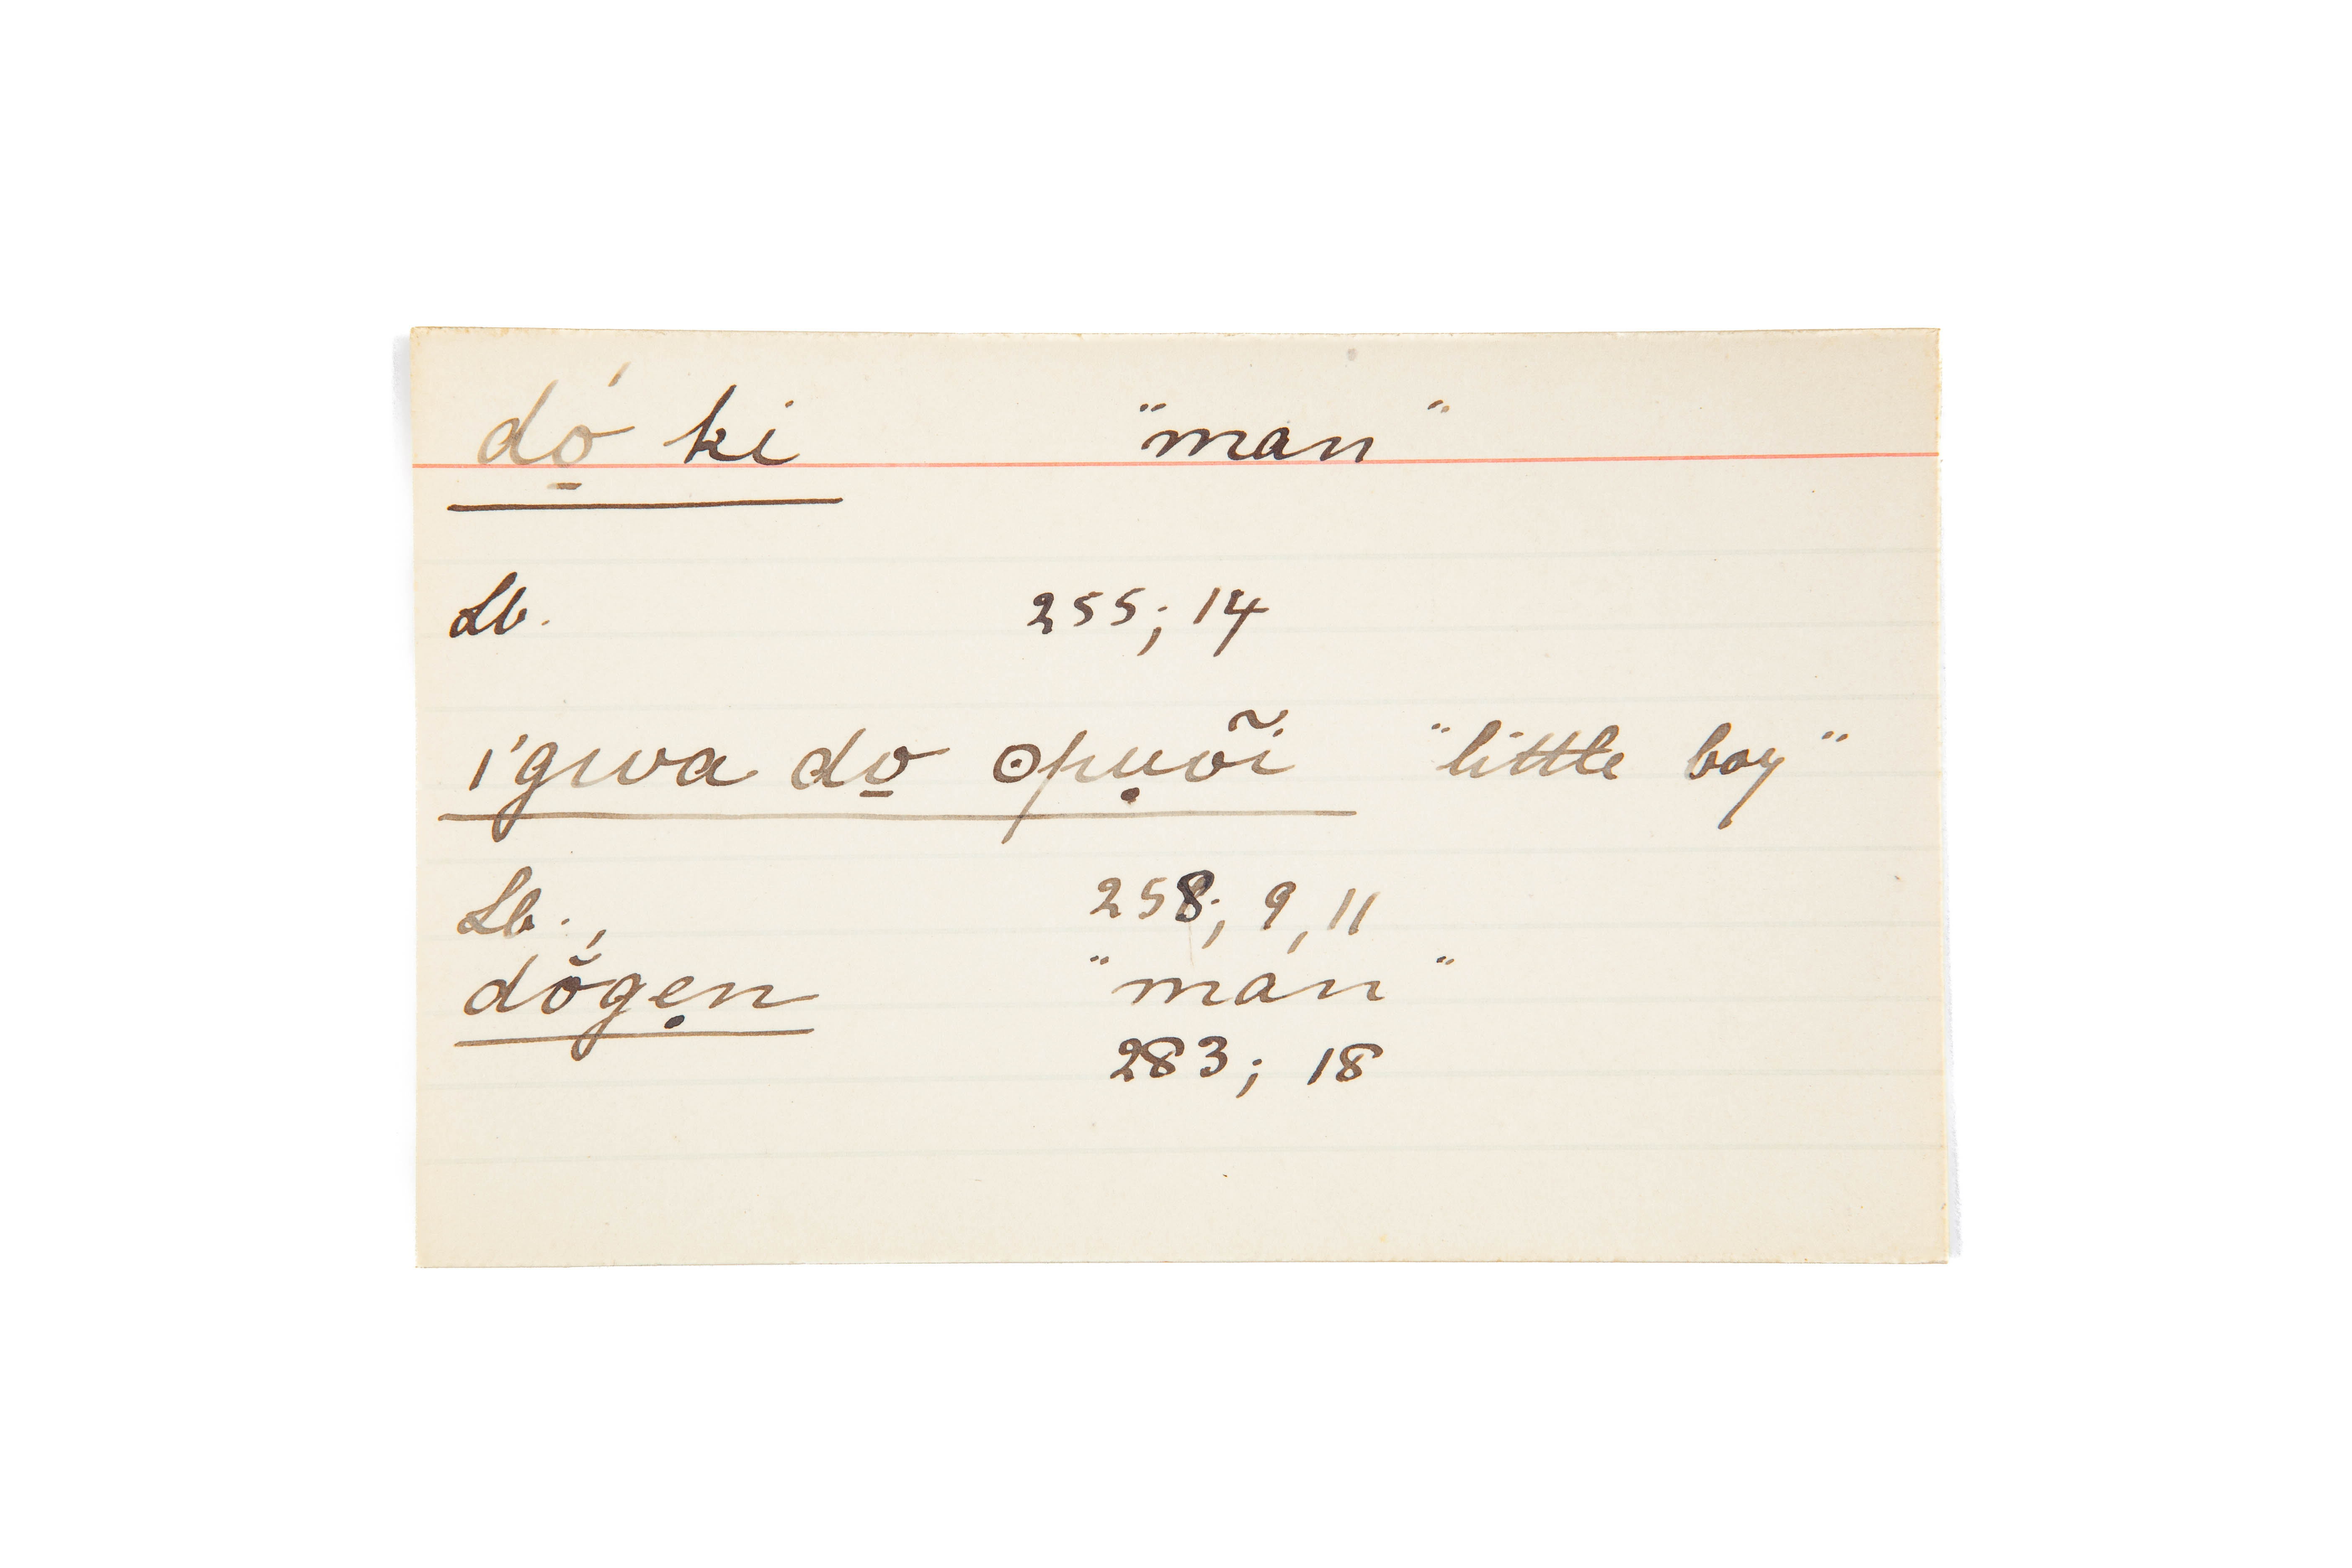 dó̱ ki "man"
Lb. 255; 14
ı'gwa do̱ ʘpụõĩ "little boy"
Lb. 258; 9, 11
dŏ́gẹn "man"
283; 18